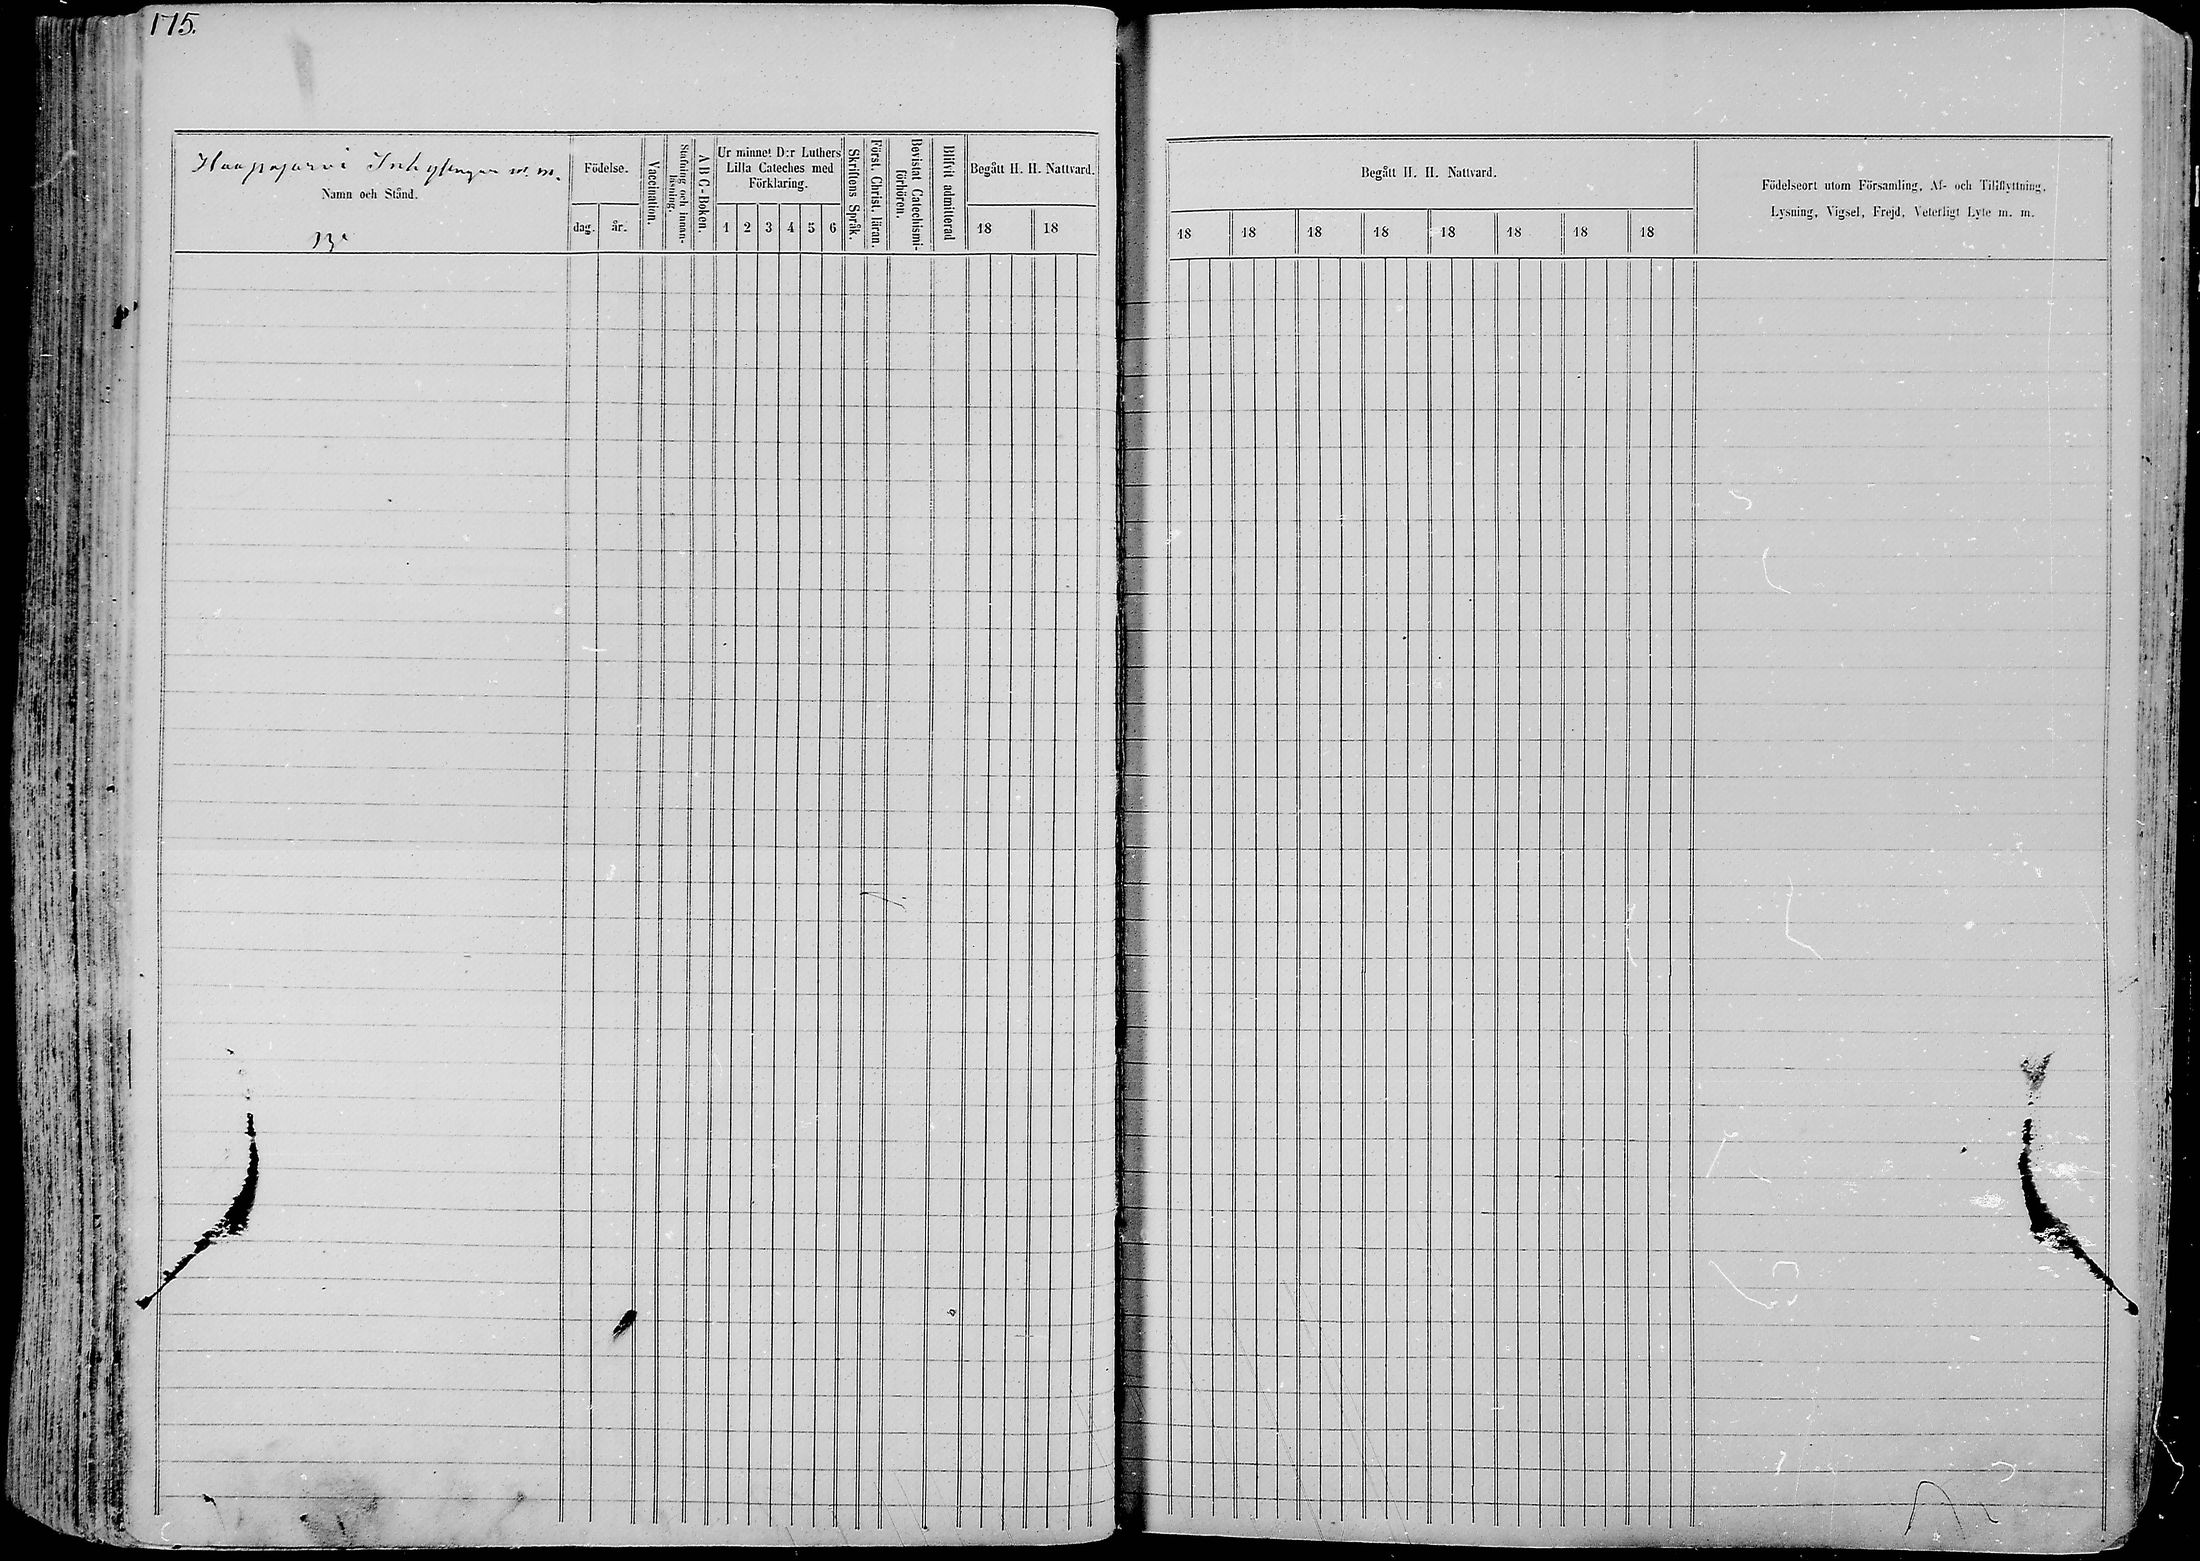 175.
Haapajärvi Inhysingar m. m.
Namn och Stånd.
Födelse.
dag.
år.
Vaccination.
Stafning och innan-
läsning.
A B C-Boken.
Ur minnet D:r Luthers
Lilla Cateches med
Förklaring.
1 2 3 4 5 6
Skriftens Språk.
Först. Christ. läran.
Bevistat Catechismi-
förhören.
Blifvit admitterad
Begått H. H. Nattvard.
18 18
Begått H. H. Nattvard.
18 18 18 18 18 18 18 18
Födelseort utom Församling, Af- och Tillflyttning,
Lysning, Vigsel, Frejd, Veterligt Lyte m. m.